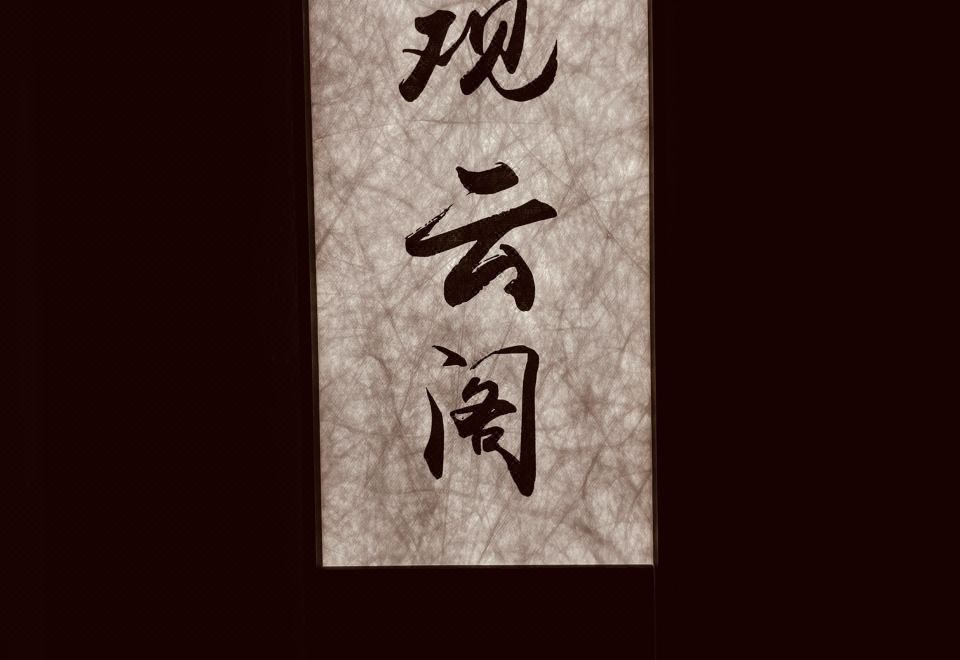 观
云
阁